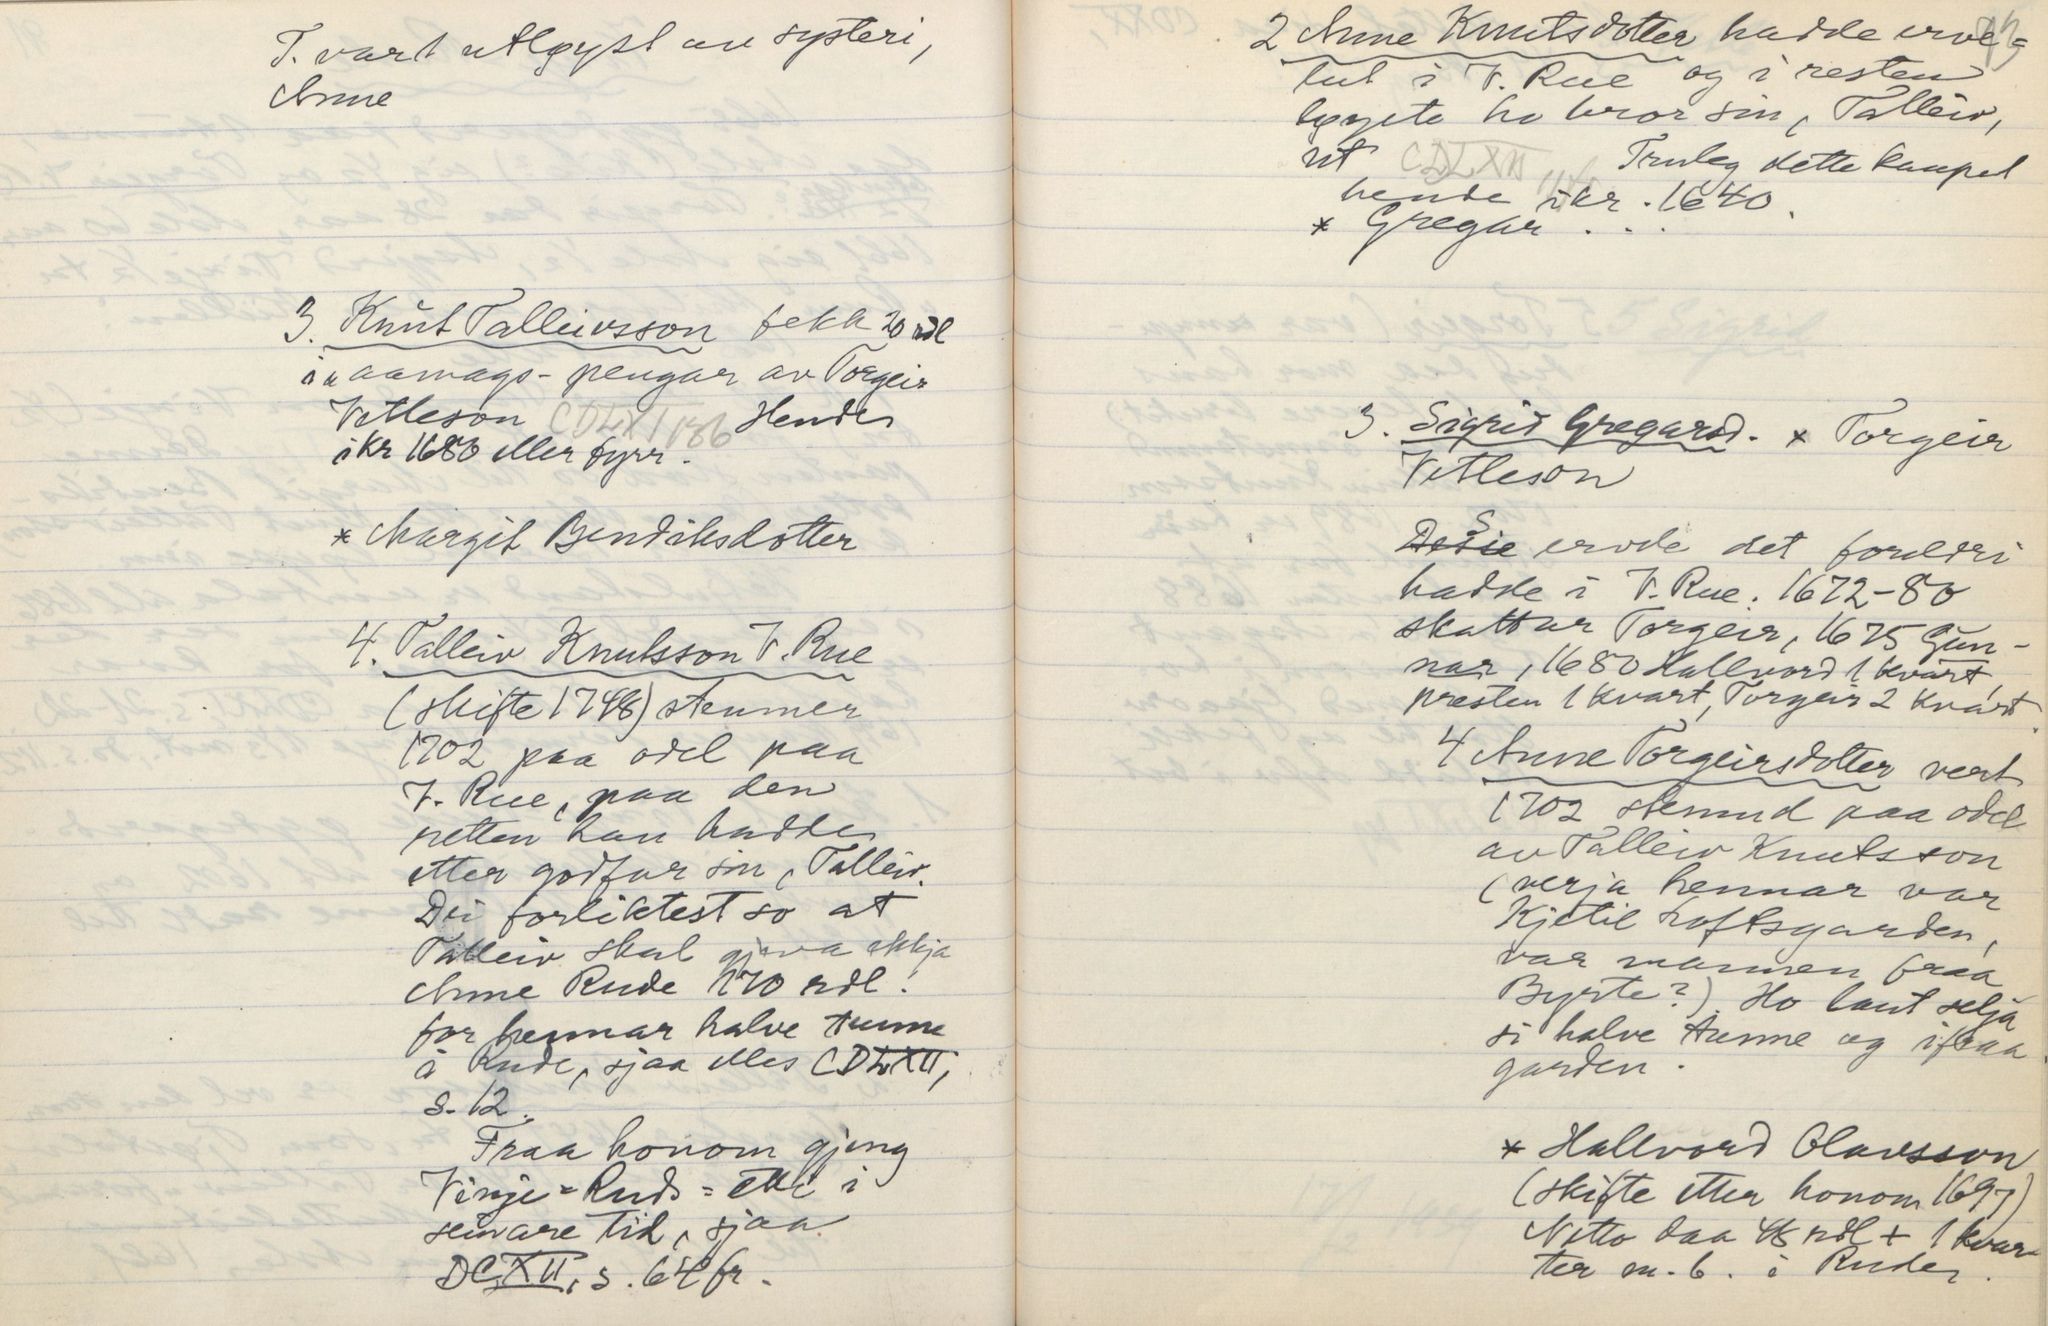 T. vart utløyst av systeri,
Anne
3. Knut Talleivsson fekk 20 rdl
i aamags-pengar av Torgeir
Vetleson CDLXII 186 Hende
ikr 1680 eller fyrr.
* Margit Bendiksdotter
4. Talleiv Knutsson V. Rue
(skifte 1748) stemner
1702 paa odel paa
V. Rue, paa den
retten han hadde
etter godfar sin, Talleiv.
Dei forliktest so at
Talleiv skal gjeva ekkja
Anne Rude 170 rdl.
for hennar halve tunne
i Rude, sjaa elles CDLXII,
s. 12.
Fraa honom gjeng
Vinje-Ruds-ætti i
seinare tid, sjaa
DCXII, s. 64 fr.
13
2 Anne Knutsdotter hadde erve=
lut i V. Rue og i resten
løyste ho bror sin, Talleiv,
ut CDLXII Truleg dette kaupet
hende ikr. 1640.
* Gregar . . .
3. Sigrid Gregarsd. * Torgeir
Vetleson
S
Desse ervde det foreldri
hadde i V. Rue. 1672-80
skattar Torgeir, 1675 Gun-
nar, 1680 Hallvord 1 kvart,
presten 1 kvart, Torgeir 2 kvart.
4 Anne Torgeirsdotter vert
1702 stemnd paa odel
av Talleiv Knutsson
(verja hennar var
Kjetil Loftsgarden,
var mannen fraa
Byrte?) Ho laut selja
si halve tunne og ifraa
garden.
* Hallvord Olavsson
(skifte etter honom 1697)
Netto daa 48 rdl + 1 kvar-
ter m. b. i Rude.